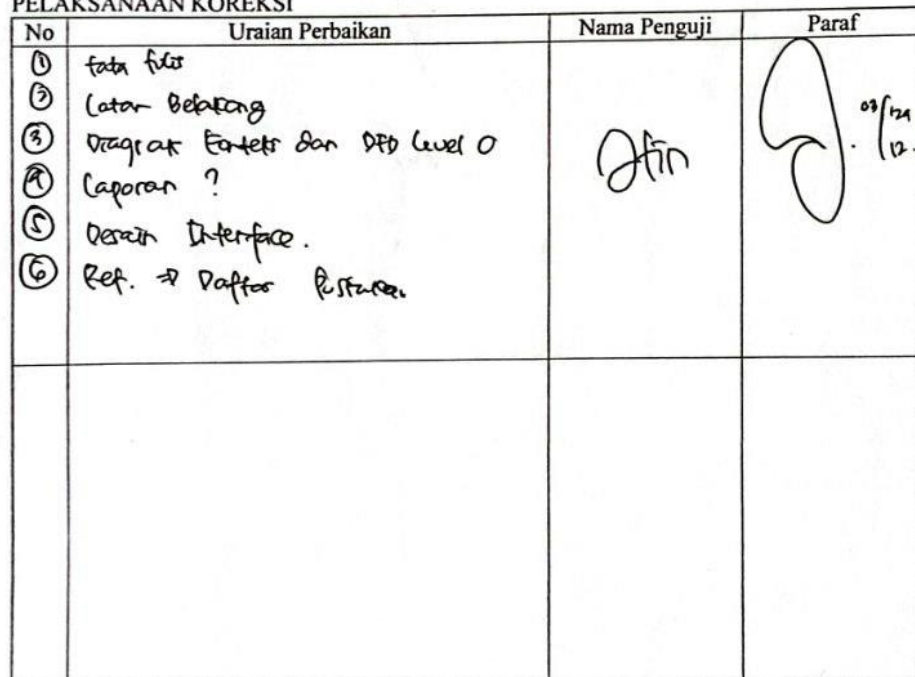 PELAKSANAAN KOREKSI
No Uraian Perbaikan Nama Penguji Paraf
① tata tulis
② Latar Belakang
③ Diagram Konteks dan DFD Level 0
④ Laporan ?
⑤ Desain Interface.
⑥ Ref. ⇒ Daftar Pustaka.